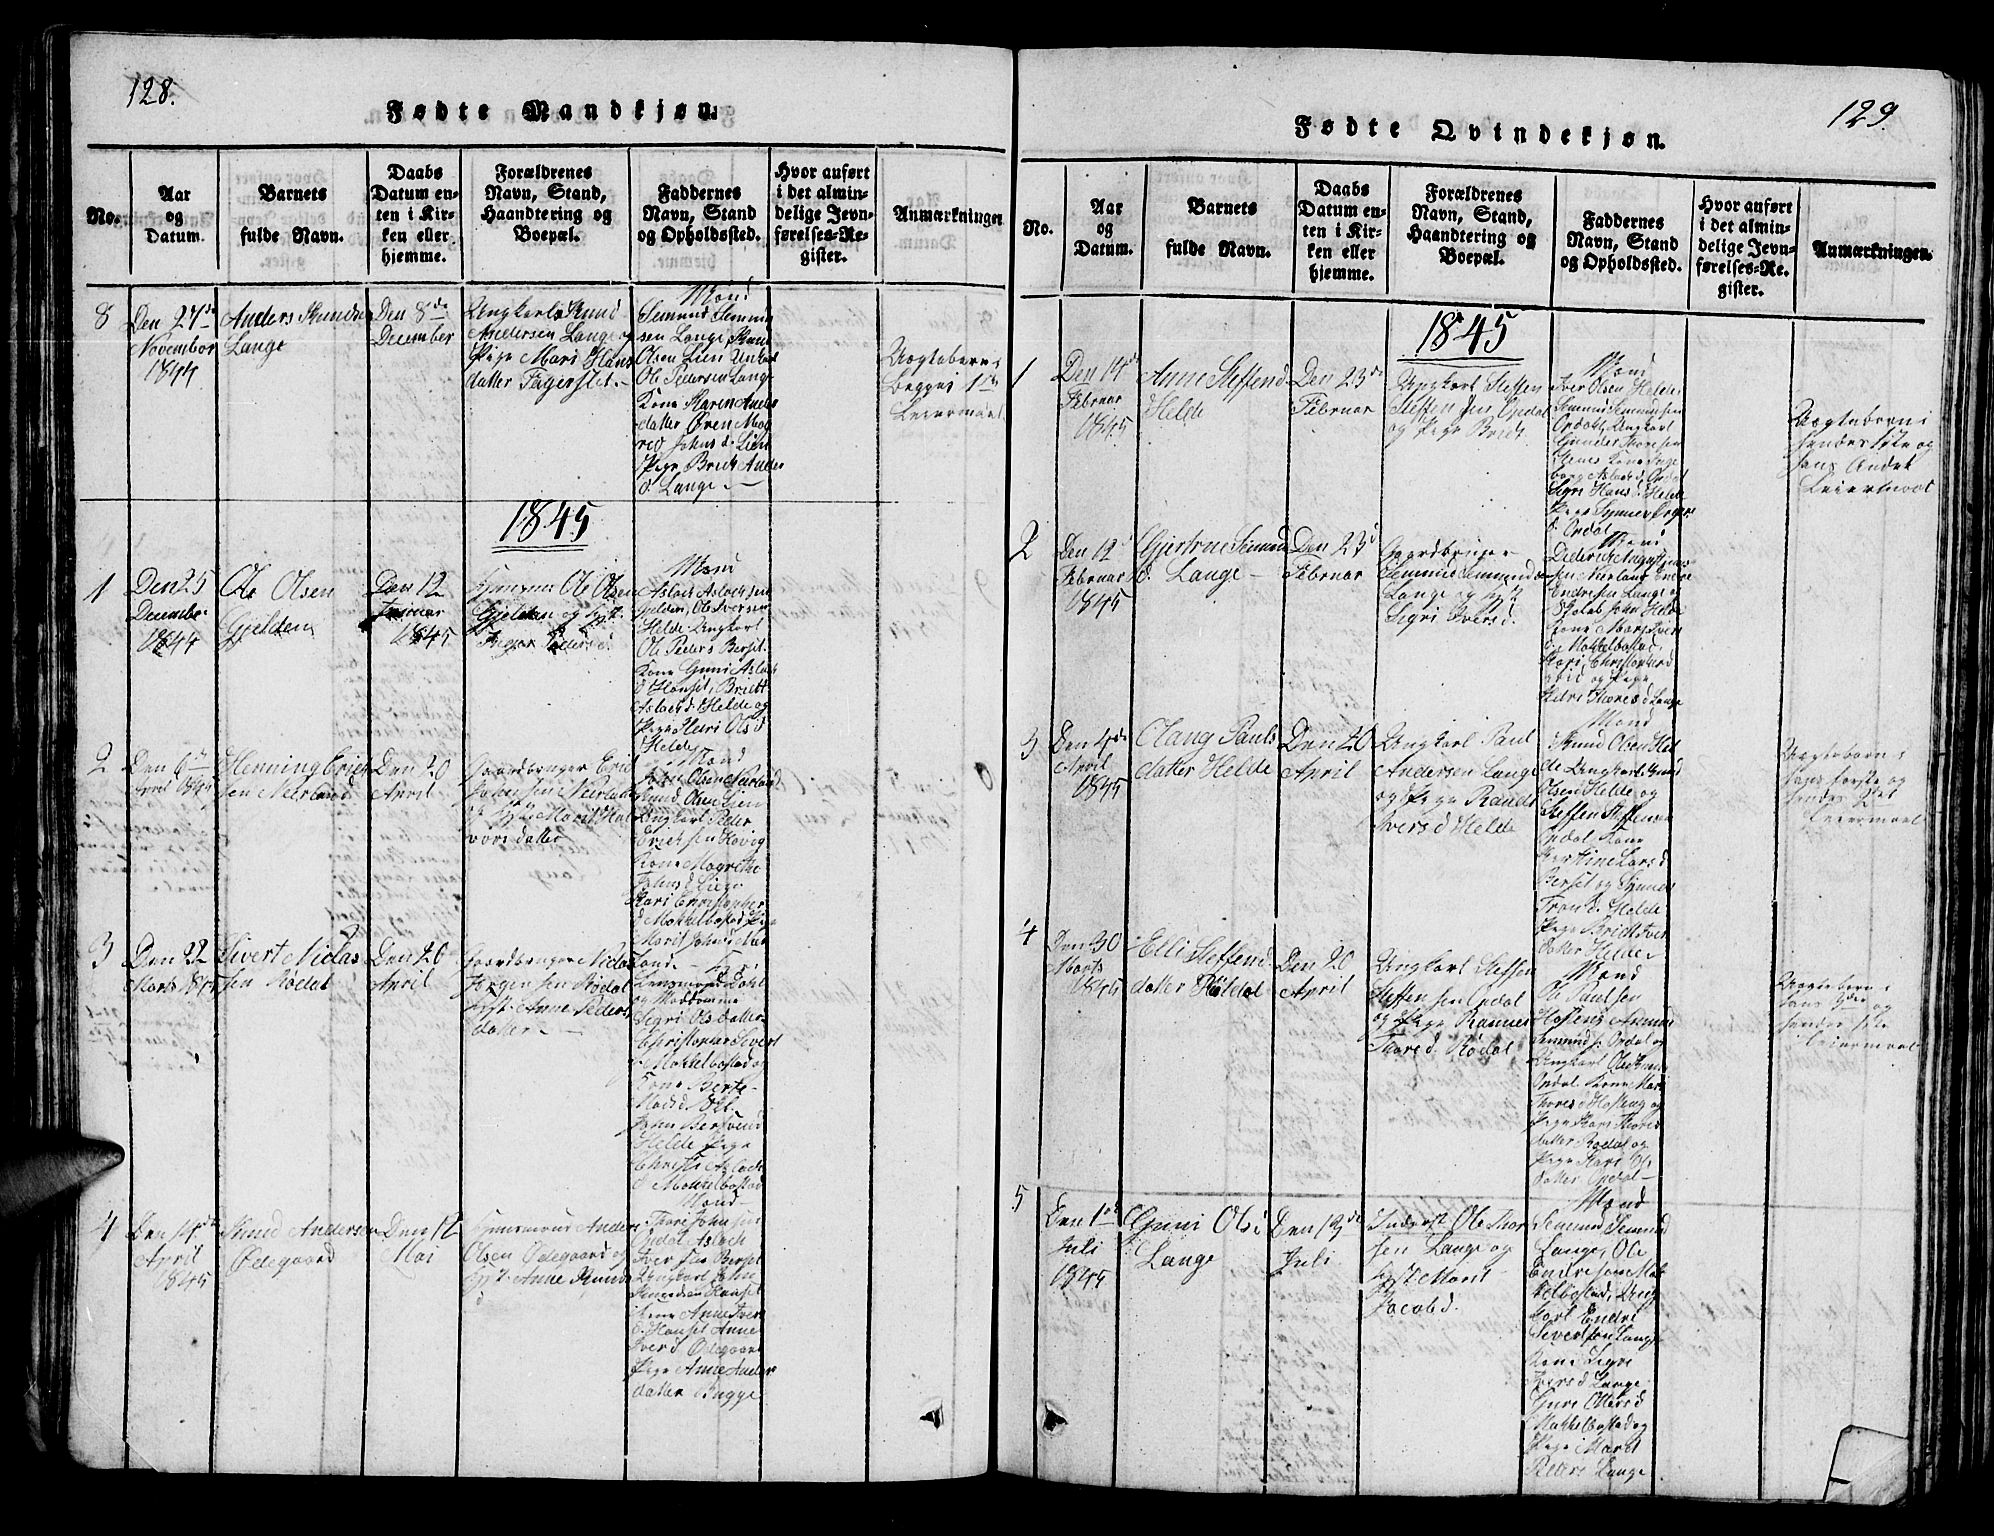 128.
Fødte Mandkjøn.
No.
Aar
og
Datum.
Barnets
fulde Navn.
Daabs
Datum en-
ten i Kir-
ken eller
hjemme.
Forældrenes
Navn, Stand,
Haandtering og
Boepæl.
Faddernes
Navn, Stand
og Opholdssted.
Hvor anført
i det almin-
delige Jevn-
førelses-Re-
gister.
Anmærkninger
8
Den 27de
November
1844
Anders Knudsen
Lange
Den 8de
December
Ungkarl Knud
Andersen Lange og
Pige Mari Hans
datter Fagerslet.
Mond
Semund Semund
sen Lange, Knud
Olsen Lien Unkarl
Ole Pedersen Lang
Kone Karen Anders
datter
Johns d. Lien
Pige Brit Anders
d. Lange
Uægteborn
Begges 1ste
Leiermaal
1845
1
Den 25
December
1844
Ole Olsen
Gjelden
Den 12
Januar
1845
Ole Olsen
Gjelden og
Peders d.
Mond
Aslach Aslachsen
Gjelden, Ole Iversen
Helde Ungkarl
Ole Peders Berset
Kone Guni Aslach
d Hanset, Britt
Aslach d Helde og
Pige Olsd
Helde
2
Den 6te
April 1845
Henning Erich
sen Nerland
Den 20
April
Gaardbruger Erich
Johnsen Nerland
Marit Hal
vors datter
Mond
John Olsen Nerland
Knud Olsen Lien
Ungkarl Peder
Erichsen Hovig
Kone Magrethe
Johns d Liego
Kari Christopher
d Mokkelbostad Pige
Marit Johns d Ner
land
3
Den 22
Marts 1845
Sivert Niclas
sen Rødal
Den 20
April
Gaardbruger Niclas
Jørgensen Rødal
Anne Peders
datter
Lensmand Dahl
og Maddamme
Sigri Ols datter
Christopher Sivert
s. Mokkelbostad og
Kone Berte
Mads d
John
Helde Pige
Christi Aslach
d Mokkelbostad
4
Den 14de
April
1845
Knud Andersen
Ødegaard
Den 12
Mai
Huusmand Anders
Olsen Ødegaard og
Anne Knuds
d
Mond
Thore Johnsen
Opdal Aslach
Iversen Berset
Ungkarl John
Hanset
Kone Anne Ivers
d. Hanset Anne
Ivers d Ødegaard
Pige Anne Anders
datter Bugge
129.
Fødte Qvindekjøn.
No.
Aar
og
Datum.
Barnets
fulde Navn.
Daabs
Datum en-
ten i Kir-
ken eller
hjemme.
Forældrenes
Navn, Stand,
Haandtering og
Boepæl.
Faddernes
Navn, Stand
og Opholdssted.
Hvor anført
i det almin-
delige Jevn-
førelses-Re-
gister.
Anmærkninger.
1845
1
Den 14de
Februar
1845
Anne Steffend
Helde
Den 23de
Februar
Ungkarl Steffen
Steffensen Opdal
og Pige Brit
Mond
Iver Olsen Helde
Semund Semundsen
Opdal, Ungkarl
Gunder Thoresen
Kone Inge
borg Aslach d. Opdal
Sigri Hans d. Helde
Pige
d. Opdal
Uægteborn
hendes 1ste og
hans Andet
Leiermaal
2
Den 12
Februar
1845
Gjertrue Semund
d. Lange
Den 23d
Februar
Gaardbruger
Semund Semundsen
Lange og
Sigri Ivers d.
Mond
Diderich Augustinus
sen Nerland, Endre
Endresen Lange og
John Helde
Kone Mari Ivers
d. Mokkelbostad,
Kari Christopher d
og Pige
Thores d Lange
3
Den 4de
April
1845
Olang Pauls
datter Helde
Den 20
April
Ungkarl Paul
Andersen Lange
og Pige Randi
Ivers d Helde
Mond
Knud Olsen Hel
de Ungkarl Knud
Olsen Helde og
Steffen Steffensen
Opdal Kone
Kerstine Lars d
Berset og
Helde
Pige Brit Iver
datter Helde
Uægteborn
hans første og
hendes 2det
Leiermaal
4
Den 30
Marts
1845
Elli Steffend
datter Rødal
Den 20
April
Ungkarl Steffen
Steffensen Opdal
og Pige
Thore d. Rødal
Mond
Ole Paulsen
Hoseng Amund
Semunds. Opdal og
Ungkarl Ole Knuds
Opdal Kone Mari
Thores d Hoseng og
Pige Kari Thores
datter Rødal og
Pige Kari Ols
datter Opdal
Uægteborn
hans og
hendes 1ste
Leiermaal
5
Den 1de
Juli
1845
Guni Olsd
Lange
Den 13de
Juli
Inderst Ole Thor
sen Lange og
Marit
Jacobd.
Mond
Semund Semund
Lange, Ole
Endresen Mok
kelbostad, Ung
karl Endre
Sivertsen Lange
Kone Sigri
Ivers d Lange
Guri Oles d
Mokkelbostad og
Pige Marit
Peders Lange